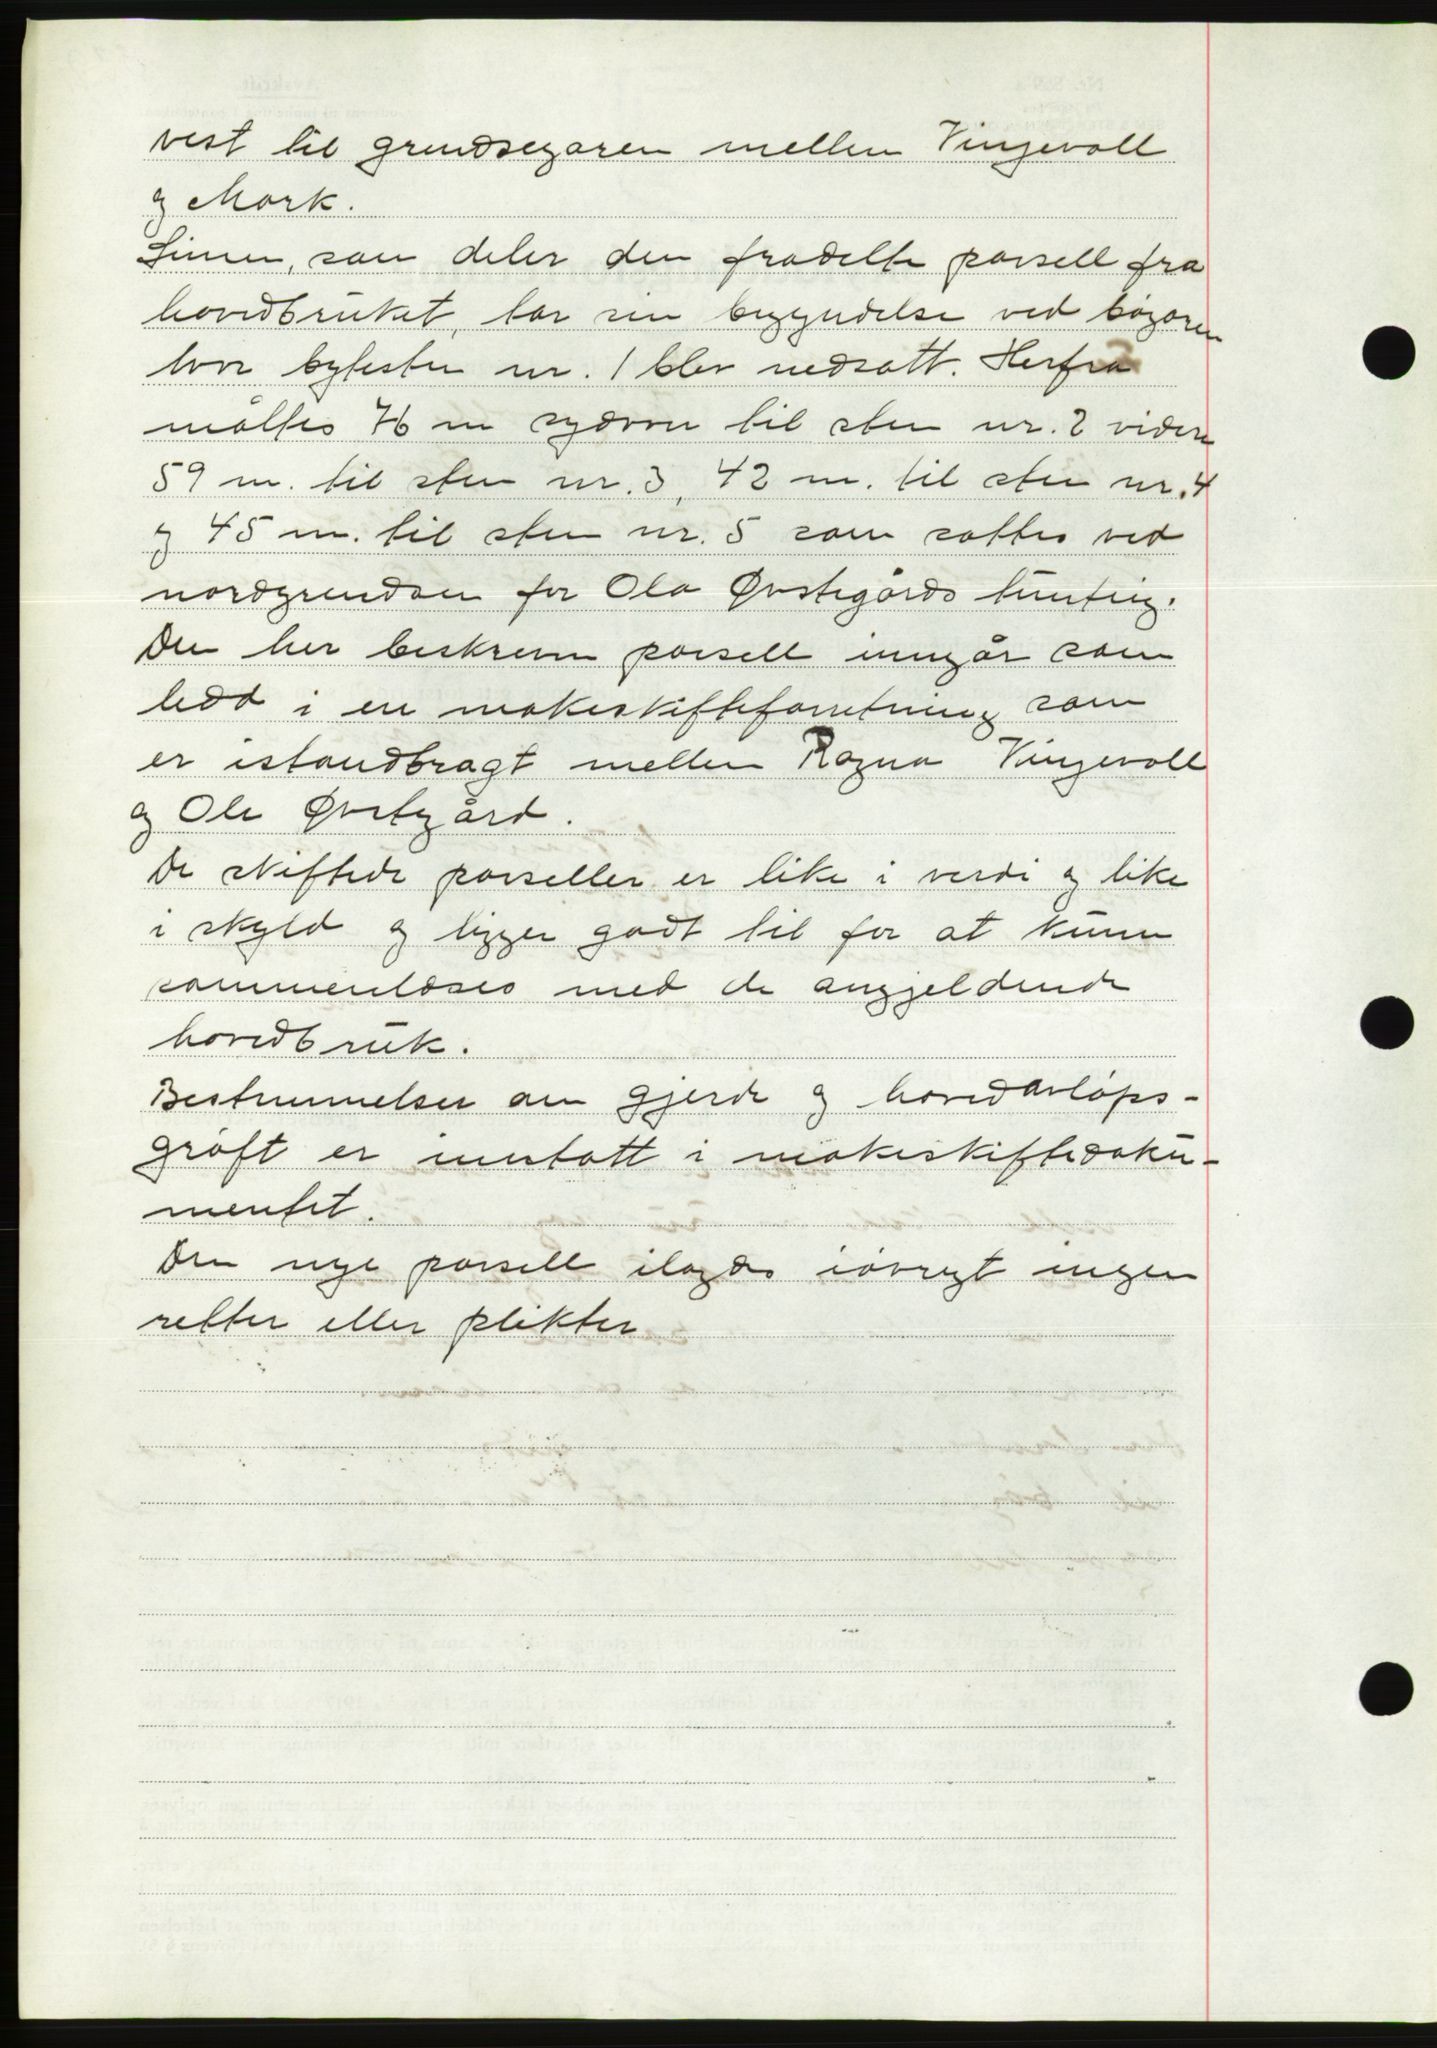 vest til grendsegaren mellem Vingevoll
og Mork.
Linen, som deler den fradelte parsell fra
hovedbruket, tar sin begyndelse ved bøgaren
hvor bytesten nr. 1 blev nedsatt. Herfra
måltes 76 m sydover til sten nr. 2 videre
59 m. til sten nr. 3, 42 m. til sten nr. 4
og 45 m. til sten nr. 5 som sattes ved
nordgrendsen for Ola Øvstegårds tunteig.
Den her beskrevne parsell inngår som
ledd i en makeskifteforretning som
er istandbragt mellem Ragna Vingevoll
og Ole Øvstegård.
De skiftede parseller er like i verdi og like
i skyld og ligger godt til for at kunne
sammenløses med de angjeldende
hovedbruk.
Bestemmelser om gjerde og hovedavløps-
grøft er inntatt i makeskiftedoku-
mentet.
Den nye parsell ilagdes iøvrigt ingen
retter eller plikter